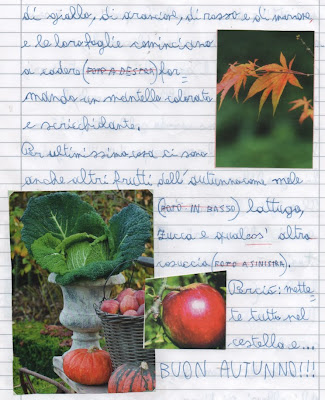 di giallo, di arancione, di rosso e di marrone,
e le loro foglie cominciano
a cadere (FOTO A DESTRA) for_
mando un mantello colorato
e scricchiolante.
Per ultimissima cosa ci sono
anche altri frutti dell'autunno come mele
(FOTO IN BASSO) lattuga,
zucca e qualcos' altra
cosuccia (FOTO A SINISTRA).
Perciò: mette_
te tutto nel
cestello e...
BUON AUTUNNO!!!